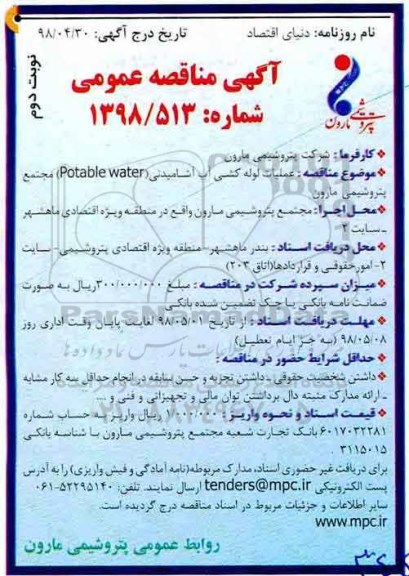 نام روزنامه: دنیای اقتصاد
تاریخ درج آگهی: ۹۸/۰۴/۳۰
نوبت دوم
MPC
پتروشیمی مارون
آگهی مناقصه عمومی
شماره: ۱۳۹۸/۵۱۳
کارفرما: شرکت پتروشیمی مارون
موضوع مناقصه: عملیات لوله کشی آب آشامیدنی (Potable water) مجتمع
پتروشیمی مارون
محل اجرا: مجتمع پتروشیمی مارون واقع در منطقه ویژه اقتصادی ماهشهر
- سایت ۲-
محل دریافت اسناد: بندر ماهشهر- منطقه ویژه اقتصادی پتروشیمی- سایت
۲- امور حقوقی و قراردادها (اتاق ۲۰۳)
میزان سپرده شرکت در مناقصه: مبلغ ۳۰۰/۰۰۰/۰۰۰ ریال به صورت
ضمانت نامه بانکی یا چک تضمین شده بانکی
مهلت دریافت اسناد: از تاریخ ۹۸/۰۵/۰۱ لغایت پایان وقت اداری روز
۹۸/۰۵/۰۸ (به جز ایام تعطیل)
حداقل شرایط حضور در مناقصه:
داشتن شخصیت حقوقی - داشتن تجربه و حسن سابقه در انجام حداقل سه کار مشابه
- ارائه مدارک مثبته دال برداشتن توان مالی و تجهیزاتی و فنی و ....
قیمت اسناد و نحوه واریز: ریال واریز به حساب شماره
۶۰۱۷۰۳۲۲۸۱ بانک تجارت شعبه مجتمع پتروشیمی مارون با شناسه بانکی
۳۱۱۵۰۱۵ .
برای دریافت غیر حضوری اسناد، مدارک مربوطه (نامه آمادگی و فیش واریزی) را به آدرس
پست الکترونیکی tenders@mpc.ir ارسال نمایند. تلفن: ۵۲۲۹۵۱۴۰-۰۶۱
سایر اطلاعات و جزئیات مربوط در اسناد مناقصه درج گردیده است.
www.mpc.ir
روابط عمومی پتروشیمی مارون
ParsNamadData